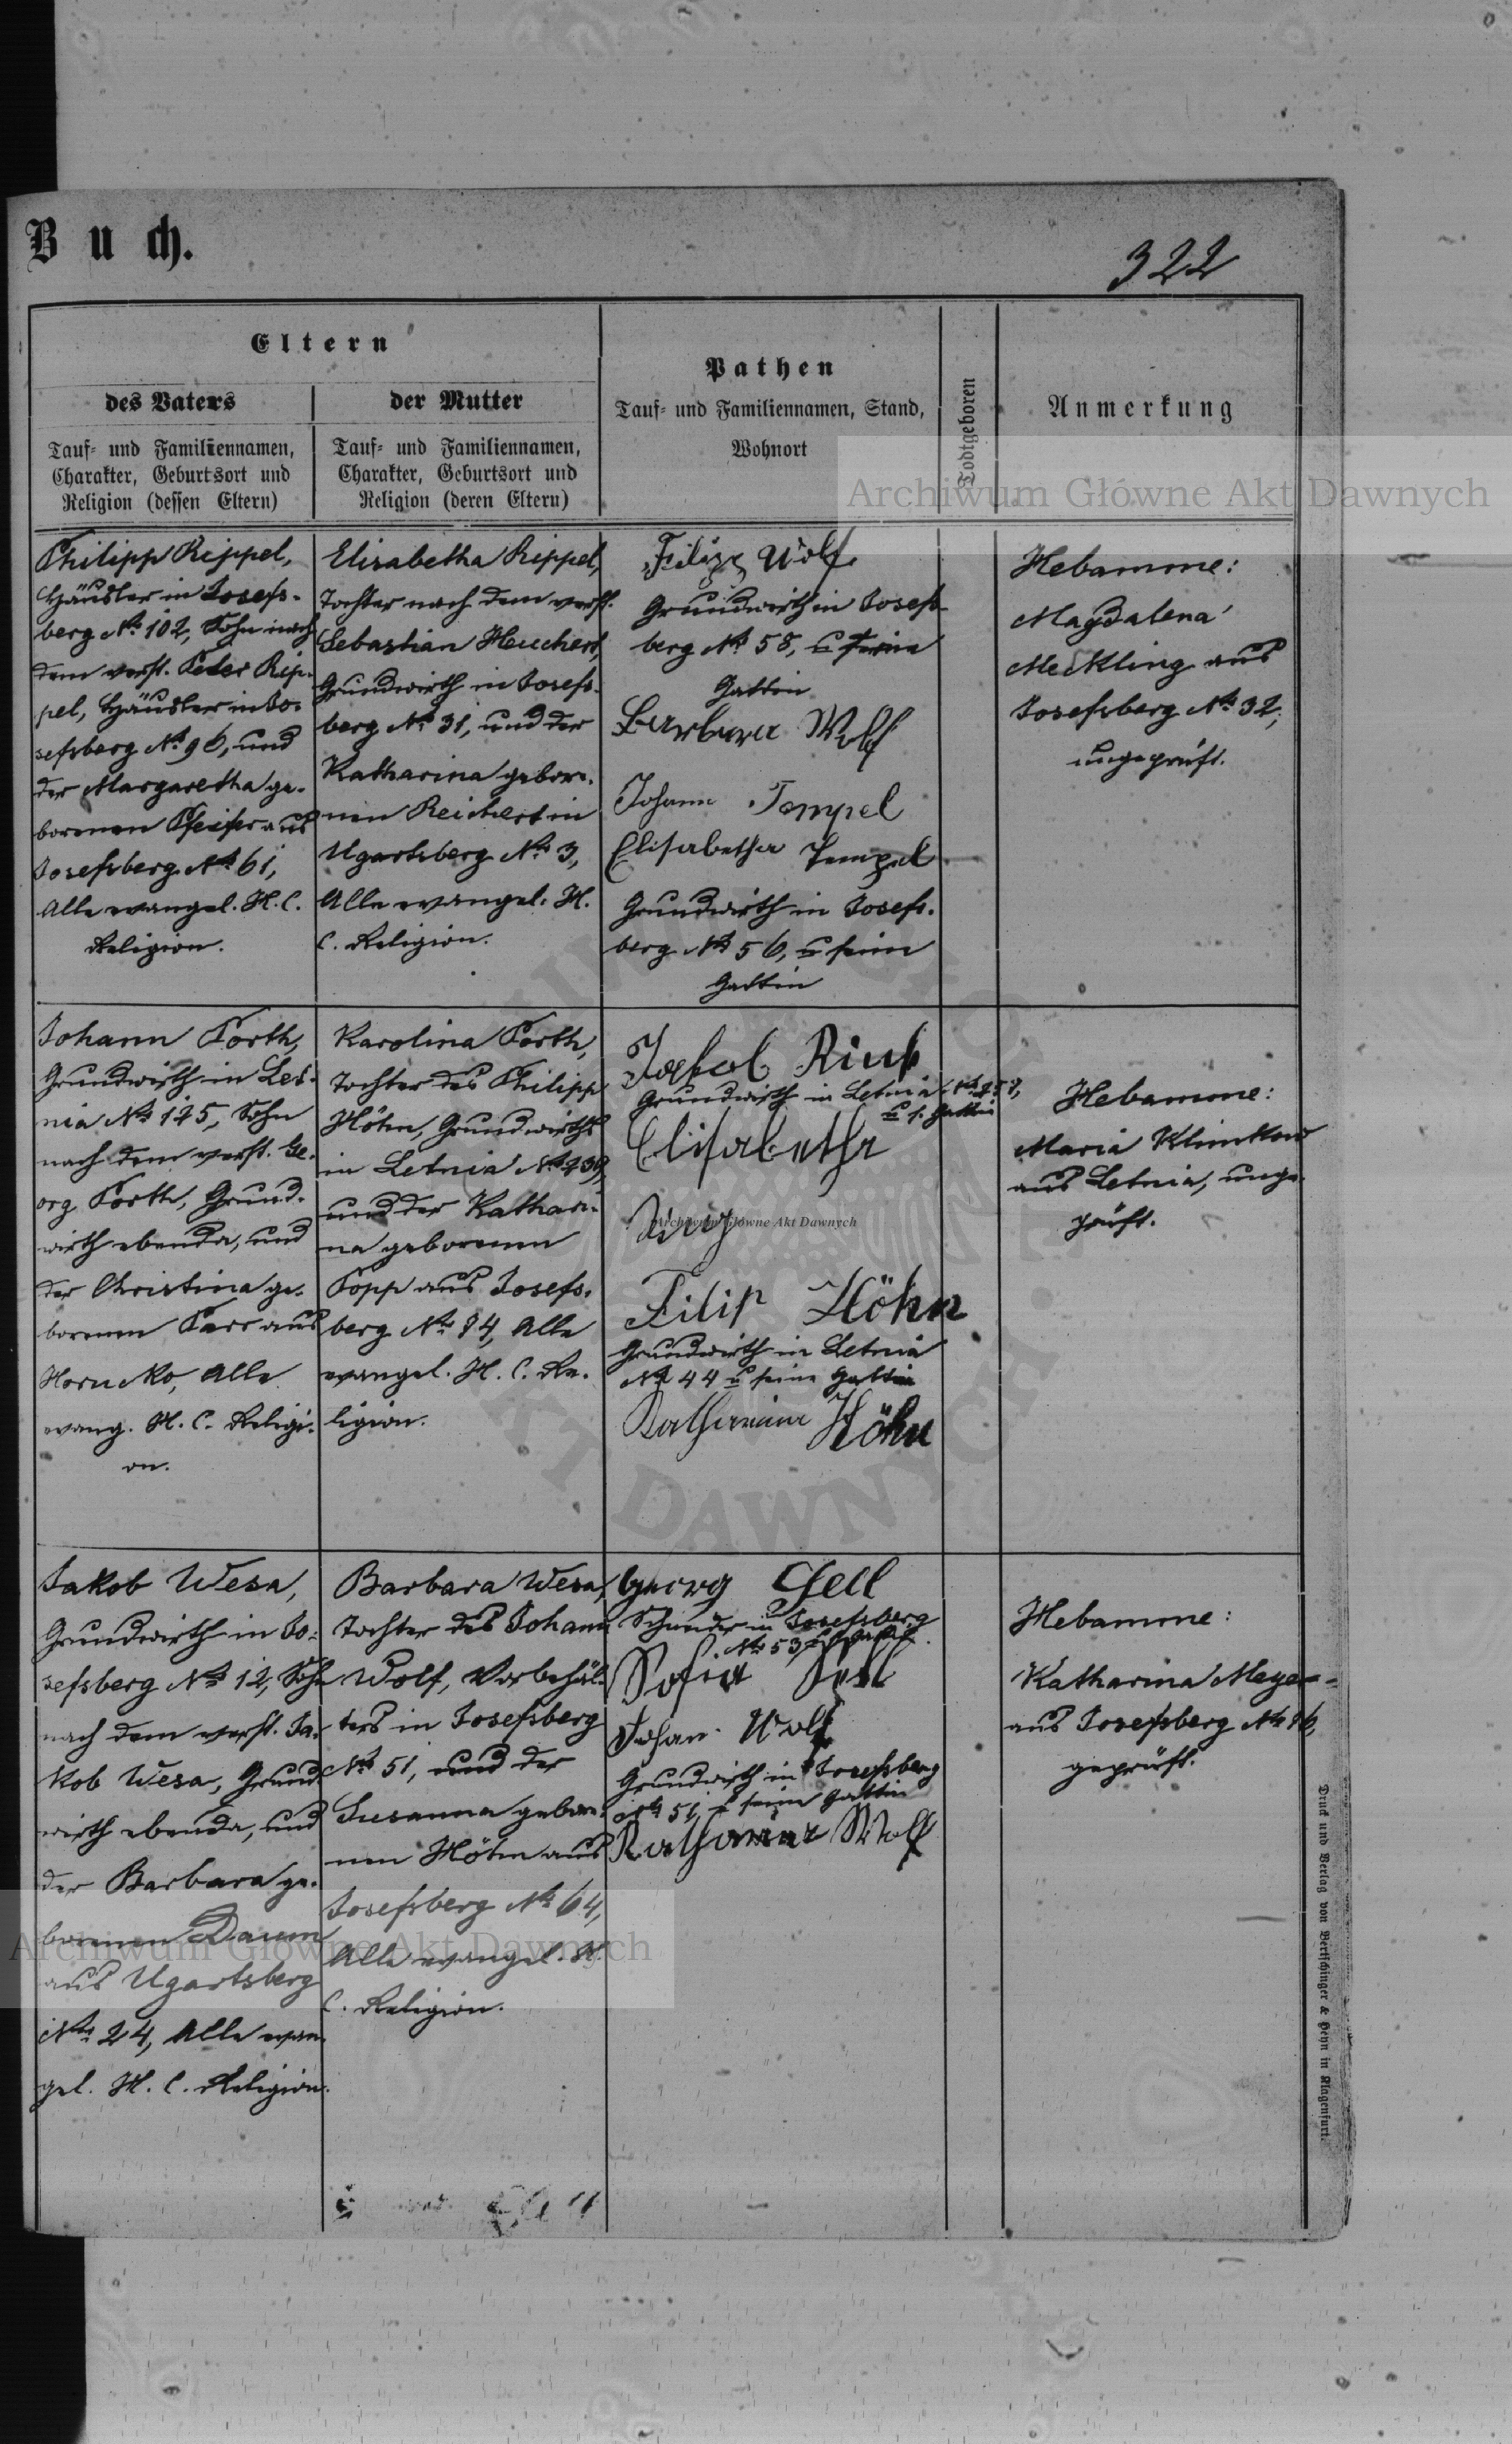 Buch.
322
Eltern
des Vaters
der Mutter
Pathen
Tauf- und Familiennamen, Stand,
Wohnort
Todtgeboren
Anmerkung
Tauf- und Familiennamen,
Charakter, Geburtsort und
Religion (dessen Eltern)
Tauf- und Familiennamen,
Charakter, Geburtsort und
Religion (deren Eltern)
Archiwum Główne Akt Dawnych
Philipp Rippel,
Häusler in Josefs-
berg No 102, Sohn nach
dem verst. Peter Rip-
pel, Häusler in Jo-
sefsberg No 96, und
der Margaretha ge-
borenen Pfeifer aus
Josefsberg No 61,
Alle evangel. H. C.
Religion.
Elisabetha Rippel,
Tochter nach dem verst.
Sebastian Heuchert,
Grundwirth in Josefs-
berg No 31, und der
Katharina gebore-
nen Reichert in
Ugartsberg No 3,
Alle evangel. H.
C. Religion.
Filipp Wolf
Grundwirth in Josefs-
berg No 58, u seine
Gattin
Barbara Wolf
Johann Tempel
Elisabetha Tempel
Grundwirth in Josefs-
berg No 56, u seine
Gattin
Hebamme:
Magdalena
Meckling aus
Josefsberg No 32,
ungeprüft.
Johann Porth,
Grundwirth in Let-
nia No 125, Sohn
nach dem verst. Ge-
org Porth, Grund-
wirth ebenda, und
der Christina ge-
borenen aus
Horucko, Alle
evang. H. C. Religi-
on.
Karolina Porth,
Tochter des Philipp
Höhn, Grundwirths
in Letnia No 239,
und der Kathari-
na geborenen
Popp aus Josefs-
berg No 84, Alle
evangel. H. C. Re-
ligion.
Jakob
Grundwirth in Letnia
u s. Gattin
Elisabetha
Archiwum Główne Akt Dawnych
Filip Höhn
Grundwirth in Letnia
No 44 u seine Gattin
Katharina Höhn
Hebamme:
Maria Klimkow
aus Letnia, unge-
prüft.
Jakob Wesa,
Grundwirth in Jo-
sefsberg No 12, Sohn
nach dem verst. Ja-
kob Wesa, Grund-
wirth ebenda, und
der Barbara ge-
borenen Daum
aus Ugartsberg
No 24, Alle evan-
gel. H. C. Religion.
Barbara Wesa,
Tochter des Johann
Wolf, Vorbehäl-
ters in Josefsberg
No 51, und der
Susanna gebore-
nen Höhn aus
Josefsberg No 64,
Alle evangel. H.
C. Religion.
Georg
in Josefsberg
No 53
Sofia
Johan Wolf
Grundwirth in Josefsberg
No 51, u seine Gattin
Katharina Wolf
Hebamme:
Katharina Meyer
aus Josefsberg No 86,
geprüft.
Archiwum Główne Akt Dawnych
Druck und Verlag von Bertschinger & Heyn in Klagenfurt.